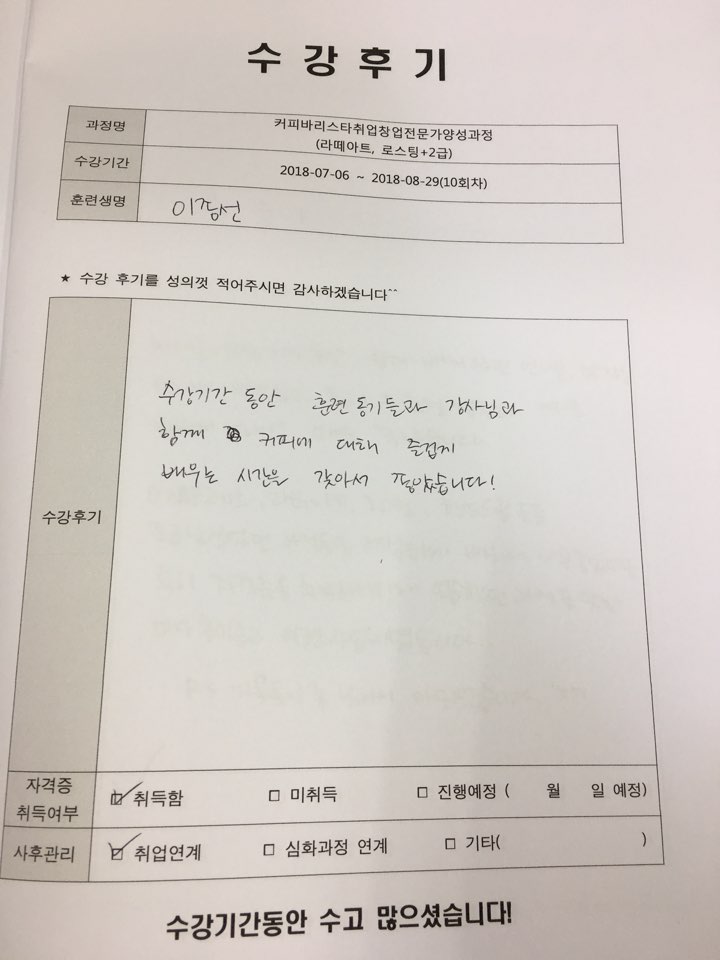 수강후기
과정명 커피바리스타취업창업전문가양성과정
(라떼아트, 로스팅+2급)
수강기간 2018-07-06 ~ 2018-08-29(10회차)
훈련생명
★ 수강 후기를 성의껏 적어주시면 감사하겠습니다^^
수강기간 동안 훈련 동기들과 강사님과
함께 커피에 대해 즐겁게
배우는 시간을 갖아서 좋았습니다!
수강후기
자격증
취득여부
☑ 취득함 □ 미취득 □ 진행예정 ( 월 일 예정)
사후관리 ☑ 취업연계 □ 심화과정 연계 □ 기타( )
수강기간동안 수고 많으셨습니다!